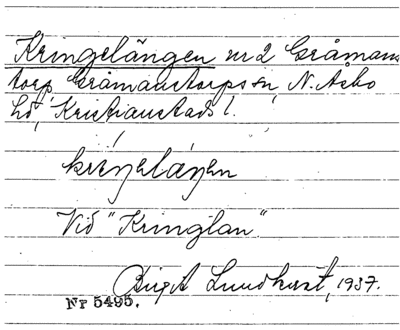 Kringelängen nr 2 Gråmans
torp Gråmanstorps sn, N. Asbo
hd, Kristianstads l.
Vid "Kringlan"
Birgit Lundkvist, 1937.
Nr 5495.